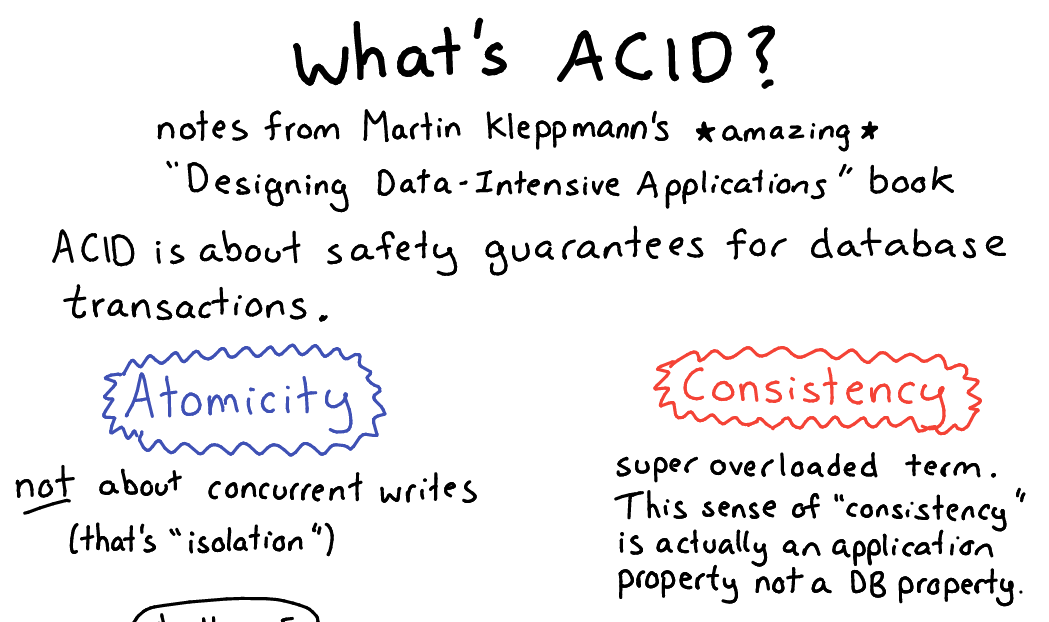 What's ACID?
notes from Martin Kleppmann's *amazing*
"Designing Data-Intensive Applications" book
ACID is about safety guarantees for database
transactions.
Atomicity
not about concurrent writes
(that's "isolation")
Consistency
super overloaded term.
This sense of "consistency"
is actually an application
property not a DB property.